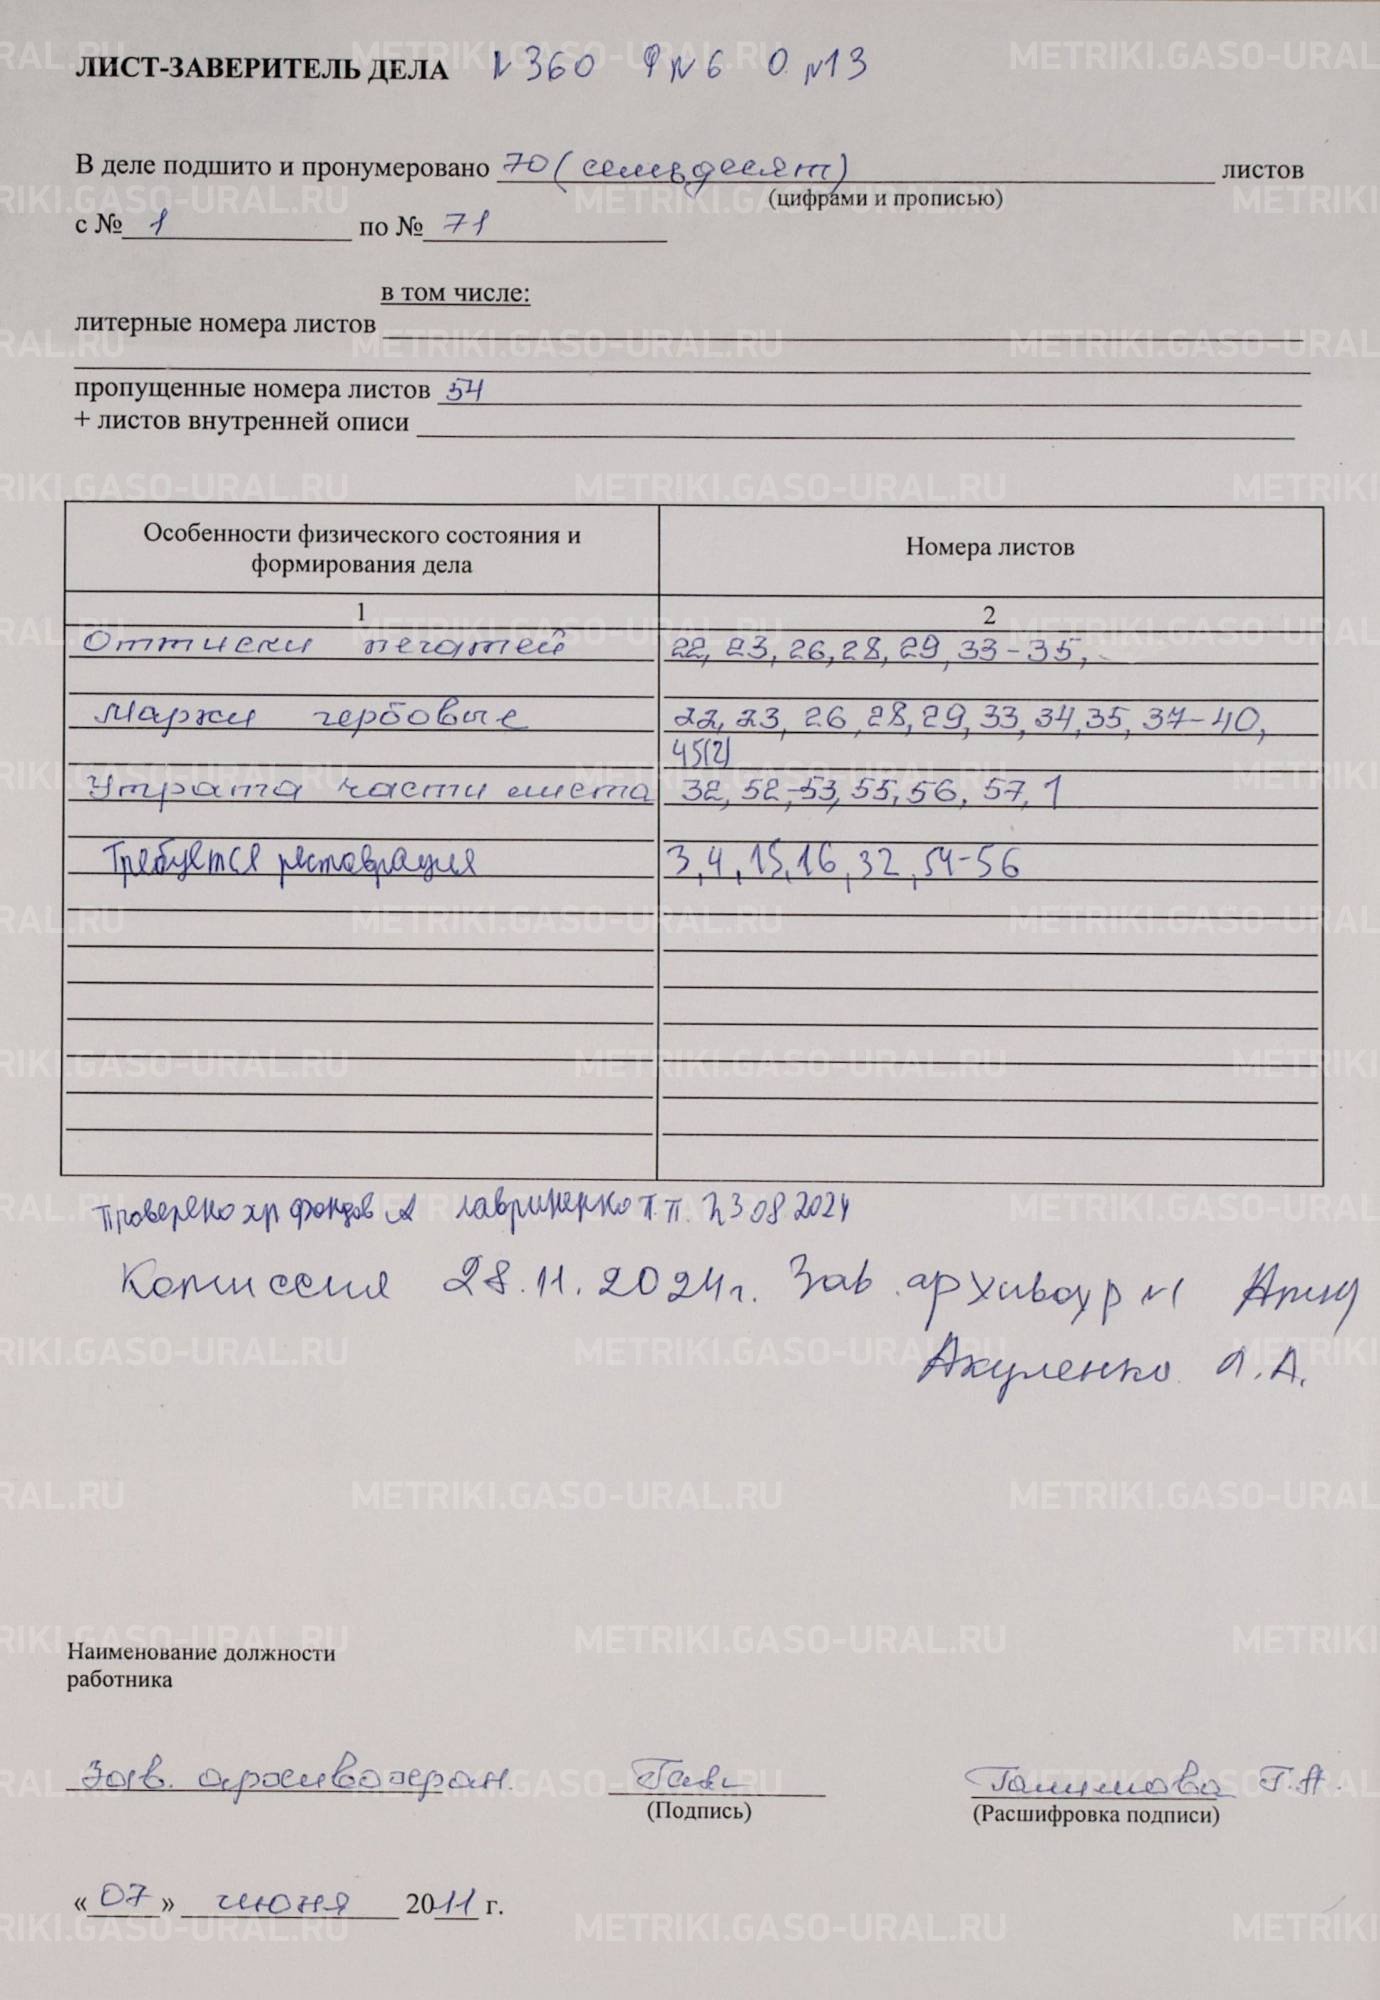 ЛИСТ-ЗАВЕРИТЕЛЬ ДЕЛА №360 Ф №6 О №13
В деле подшито и пронумеровано 70 (семьдесят) листов
(цифрами и прописью)
с № 1 по № 71
в том числе:
литерные номера листов
пропущенные номера листов 54
+ листов внутренней описи
Особенности физического состояния и формирования дела
Номера листов
1 2
Оттиски печатей 22, 23, 26, 28, 29, 33-35,
Марки гербовые 22, 23, 26, 28, 29, 33, 34, 35, 37-40,
45(2)
Утрата части листа 32, 52-53, 55, 56, 57, 1
Требуется реставрация 3, 4, 15, 16, 32, 54-56
Проверено хр фондов Лавриненко П.П. 23 08 2024
Комиссия 28.11.2024г. Зав. архивохр №1
Акуленко Л.А.
Наименование должности
работника
Зав. архивохран. Галимова Г.А.
(Подпись) (Расшифровка подписи)
«07» июня 2011 г.
METRIKI.GASO-URAL.RU